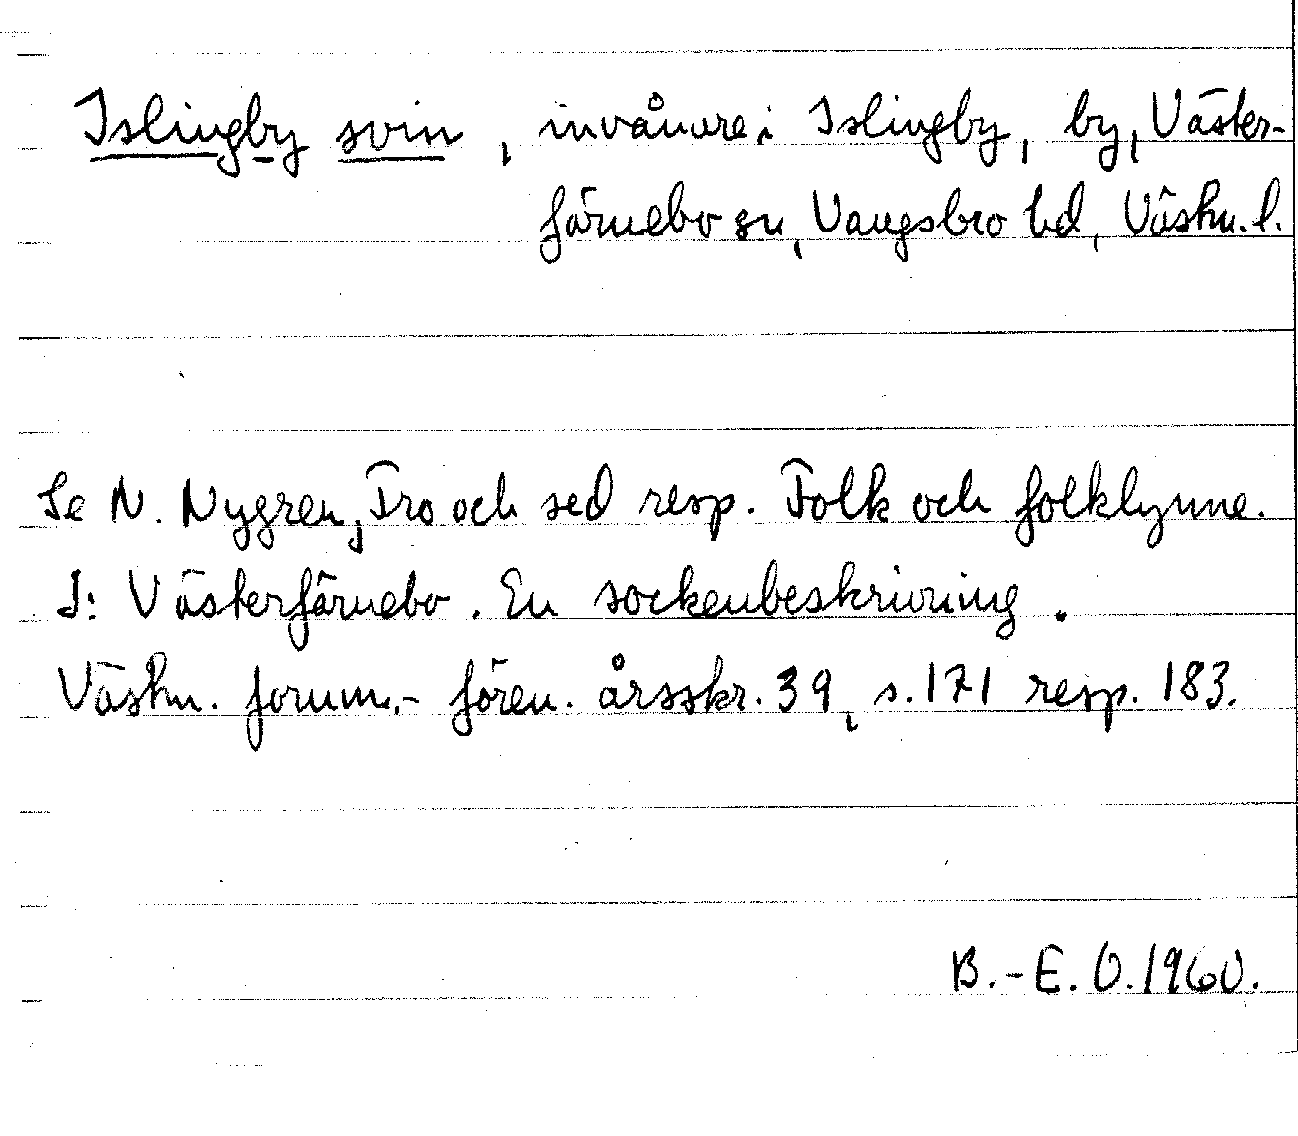 Islingby svin, invånare i Islingby, by, Väster-
färnebo sn, Vangsbro hd, Västm. l.
Se N. Nygren, Tro och sed resp. Folk och folklynne.
I: Västerfärnebo. En sockenbeskrivning.
Västm. fornm.-fören. årsskr. 39, s. 171 resp. 183.
B.-E. O. 1960.